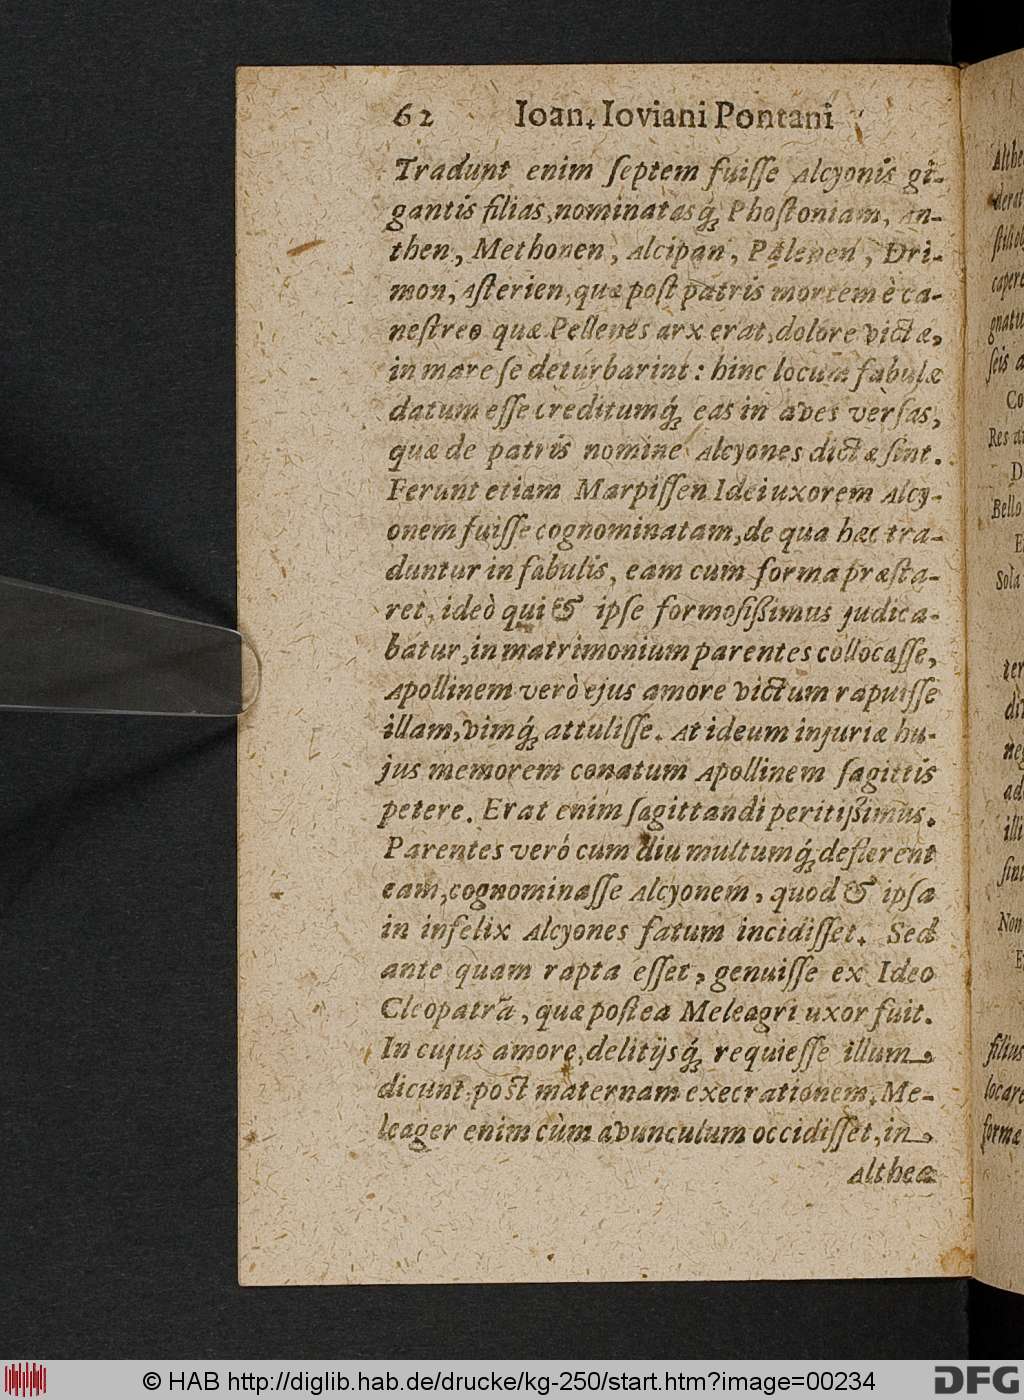 62 Ioan. Ioviani Pontani
Tradunt enim ſeptem fuiſſe Alcyonis gi-
gantis filias, nominatasq́; Phoſtoniam, An-
then, Methonen, Alcipan, Palenen, Dri-
mon, Aſterien, quæ poſt patris mortem è ca-
neſtreo quæ Pellenes arx erat, dolore victæ,
in mare ſe deturbarint: hinc locum fabulæ
datum eſſe creditumq́; eas in aves verſas,
quæ de patris nomine Alcyones dictæ ſint.
Ferunt etiam Marpiſſen Idei uxorem Alcy-
onem fuiſſe cognominatam, de qua hæc tra-
duntur in fabulis, eam cum forma præſta-
ret, ideò qui & ipſe formoſißimus judica-
batur, in matrimonium parentes collocaſſe,
Apollinem verò ejus amore victum rapuiſſe
illam, vimq́; attuliſſe. At ideum injuriæ hu-
jus memorem conatum Apollinem ſagittis
petere. Erat enim ſagittandi peritißimus.
Parentes veró cum diu multumq́; deflerent
eam, cognominaſſe Alcyonem, quod & ipſa
in infelix Alcyones fatum incidiſſet. Sed
ante quam rapta eſſet, genuiſſe ex Ideo
Cleopatrã, quæ poſtea Meleagri uxor fuit.
In cujus amore, delitijsq́; requieſſe illum
dicunt, poſt maternam execrationem. Me-
leager enim cùm avunculum occidiſſet, in
Altheæ
Althe
derat
ſtiſ ob
capere
gnatu
ſeis a
Co
Res
D
Bello
E
Sola
ter
di
neg
ad
illi
ſint
Non
E
filius
locare
formæ
© HAB http://diglib.hab.de/drucke/kg-250/start.htm?image=00234
DFG